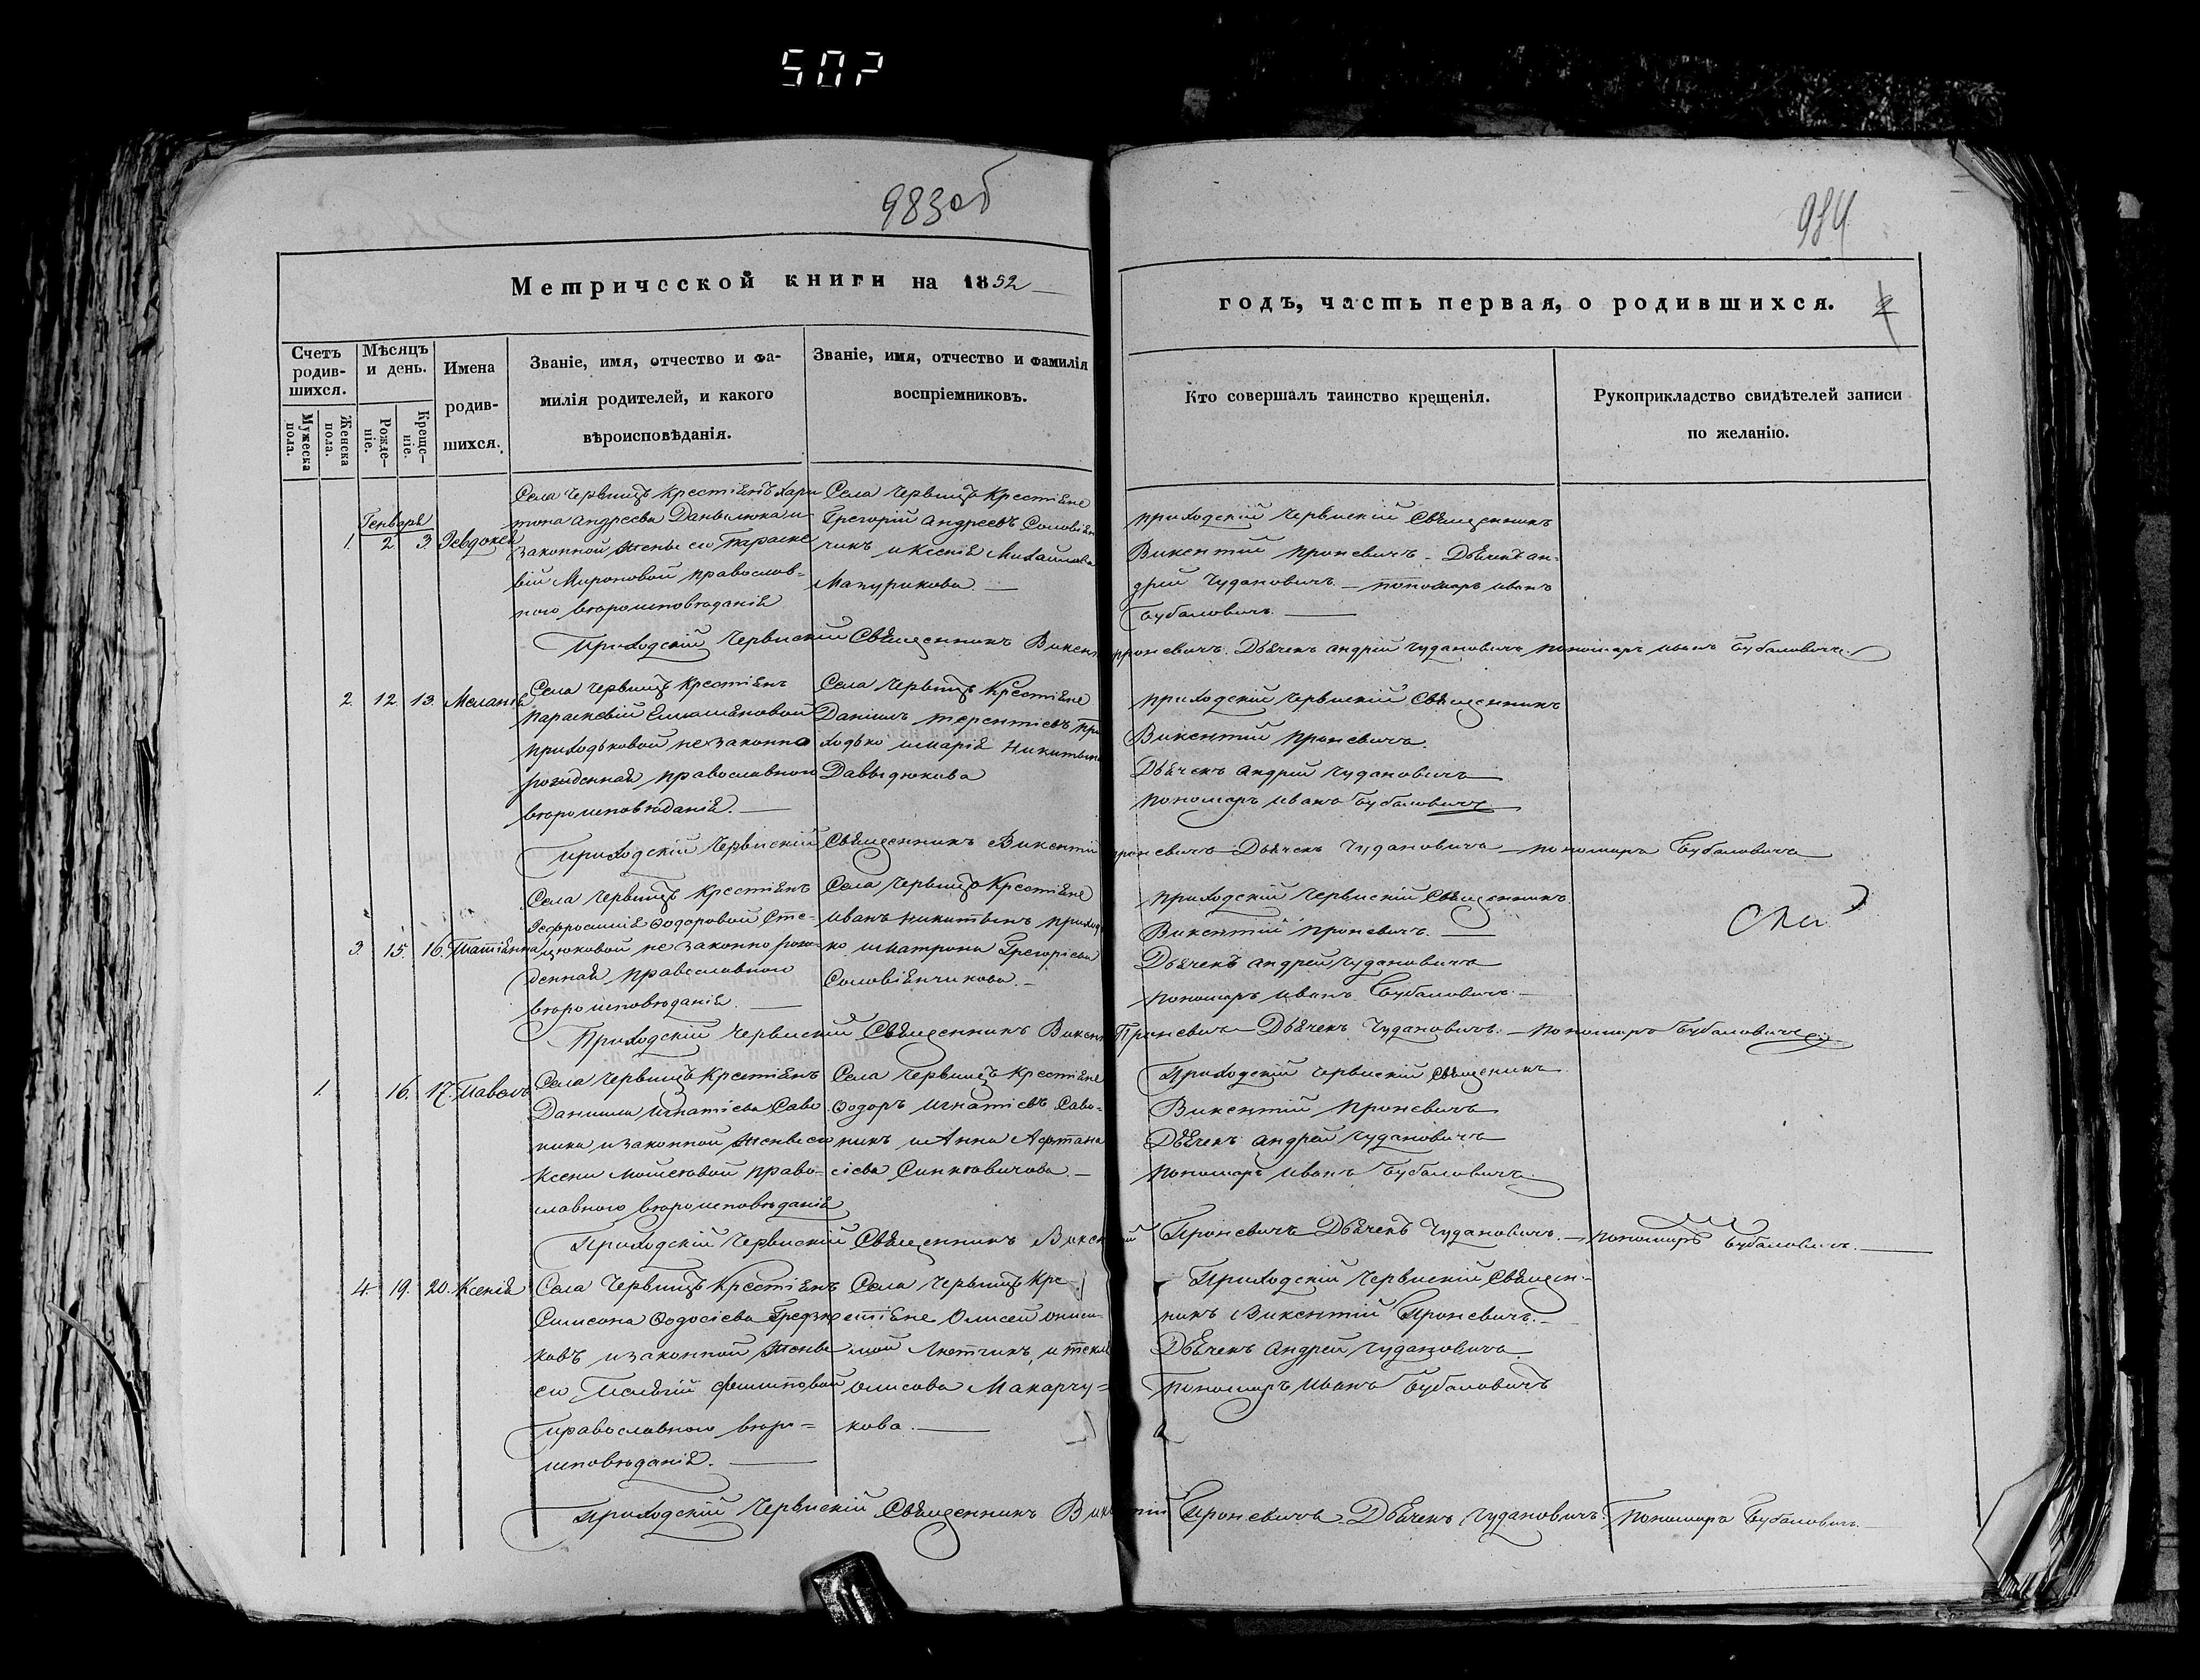 507
983об
984
Метрической книги на 1852
годъ, часть первая, о родившихся. 2
Счетъ родив-шихся.
Мужеска пола.
Женска пола.
Мѣсяцъ и день.
Рожде-ніе.
Креще-ніе.
Имена
родив-
шихся.
Званіе, имя, отчество и фа-
милія родителей, и какого
вѣроисповѣданія.
Званіе, имя, отчество и фамилія
воспріемниковъ.
Кто совершалъ таинство крещенія.
Рукоприкладство свидѣтелей записи
по желанію.
Генваря
1. 2 3.
Села Червищъ Крестіянъ Хари
тона Андреева Данилюка и
законной жены его Параске
вій Мироновой православ-
ного вѣроисповѣданія
Села Червищъ Крестіяне
Грегорій Андреевъ Соловіян
чикъ и Ксенія Михайлова
Мазурикова.
приходскій Червискій Свѣщенникъ
Викентій Проневичъ - Дьячекъ Ан-
дрей Чудановичъ - пономаръ Иванъ
Бубаловичъ.
Приходскій Червискій Свѣщенникъ Викен проневичъ. Дьячекъ Андрій Чудановичъ пономаръ Иванъ Бубаловичъ
2. 12 13. Меланія
Села Червищъ Крестіянъ
Параскевій Емиліяновой
Приходьковой незаконно
рожденная православного
вѣроисповѣданія.
Села Червищъ Крестіяне
Даніилъ Терентіевъ При
ходько и Марія Никитина
Давыдюкова
приходскій Червискій Свѣщенникъ
Викентій Проневичъ.
Дьячекъ Андрей Чудановичъ
пономаръ Иванъ Бубаловичъ
Приходскій Червискій Свѣщенникъ Викентій проневичъ Дьячекъ Чудановичъ пономаръ Бубаловичъ
3. 15. 16. Татіянна
Села Червищъ Крестіянъ
Эефросиніи Ѳодоровой Сте-
цюковой не законно рож-
денная православного
вѣроисповѣданія.
Села Червищъ Крестіяне
Иванъ Никитынъ Приход
ко и Матрона Грегоріева
Соловіянчикова.
приходскій Червискій Свѣщенникъ
Викентій Проневичъ.
Дьячекъ Андрей Чудановичъ
пономаръ Иванъ Бубаловичъ
Приходскій Червискій Свѣщенникъ Викен Проневичъ Дьячекъ Чудановичъ. - пономаръ Бубаловичъ
1. 16. 17. Павелъ
Села Червищъ Крестіянъ
Даниила Игнатіева Саво
ника и законной жены его
Ксени Мойсеовой право-
славного вѣроисповѣданія
Села Червищъ Крестіяне
Ѳодоръ Игнатіевъ Саво-
никъ и Анна Афтана
сіева Синковичова.
Приходскій Червискій Свѣщеникъ
Викентій Проневичъ
Дьячекъ Андрей Чудановичъ
пономаръ Иванъ Бубаловичъ
Приходскій Червискій Свѣщенникъ Викен ій Проневичъ Дьячекъ Чудановичъ. - пономаръ Бубаловичъ.
4. 19. 20. Ксенія
Села Червищъ Крестіянъ
Симеона Ѳодосіева
ковъ и законной жены
его Пелагій Филиповой
православного вѣро-
исповѣданія.
Села Червищъ Кре-
стіяне Олисей Ониси-
мой Лютчикъ, и Текля
Олисова Макарчу-
кова.
Приходскій Червискій Свѣщен-
никъ Викентій Проневичъ.
Дьячекъ Андрей Чудановичъ
Пономаръ Иванъ Бубаловичъ
Приходскій Червискій Свѣщенникъ Вик тій Проневичъ. Дьячекъ Чудановичъ Пономаръ Бубаловичъ.